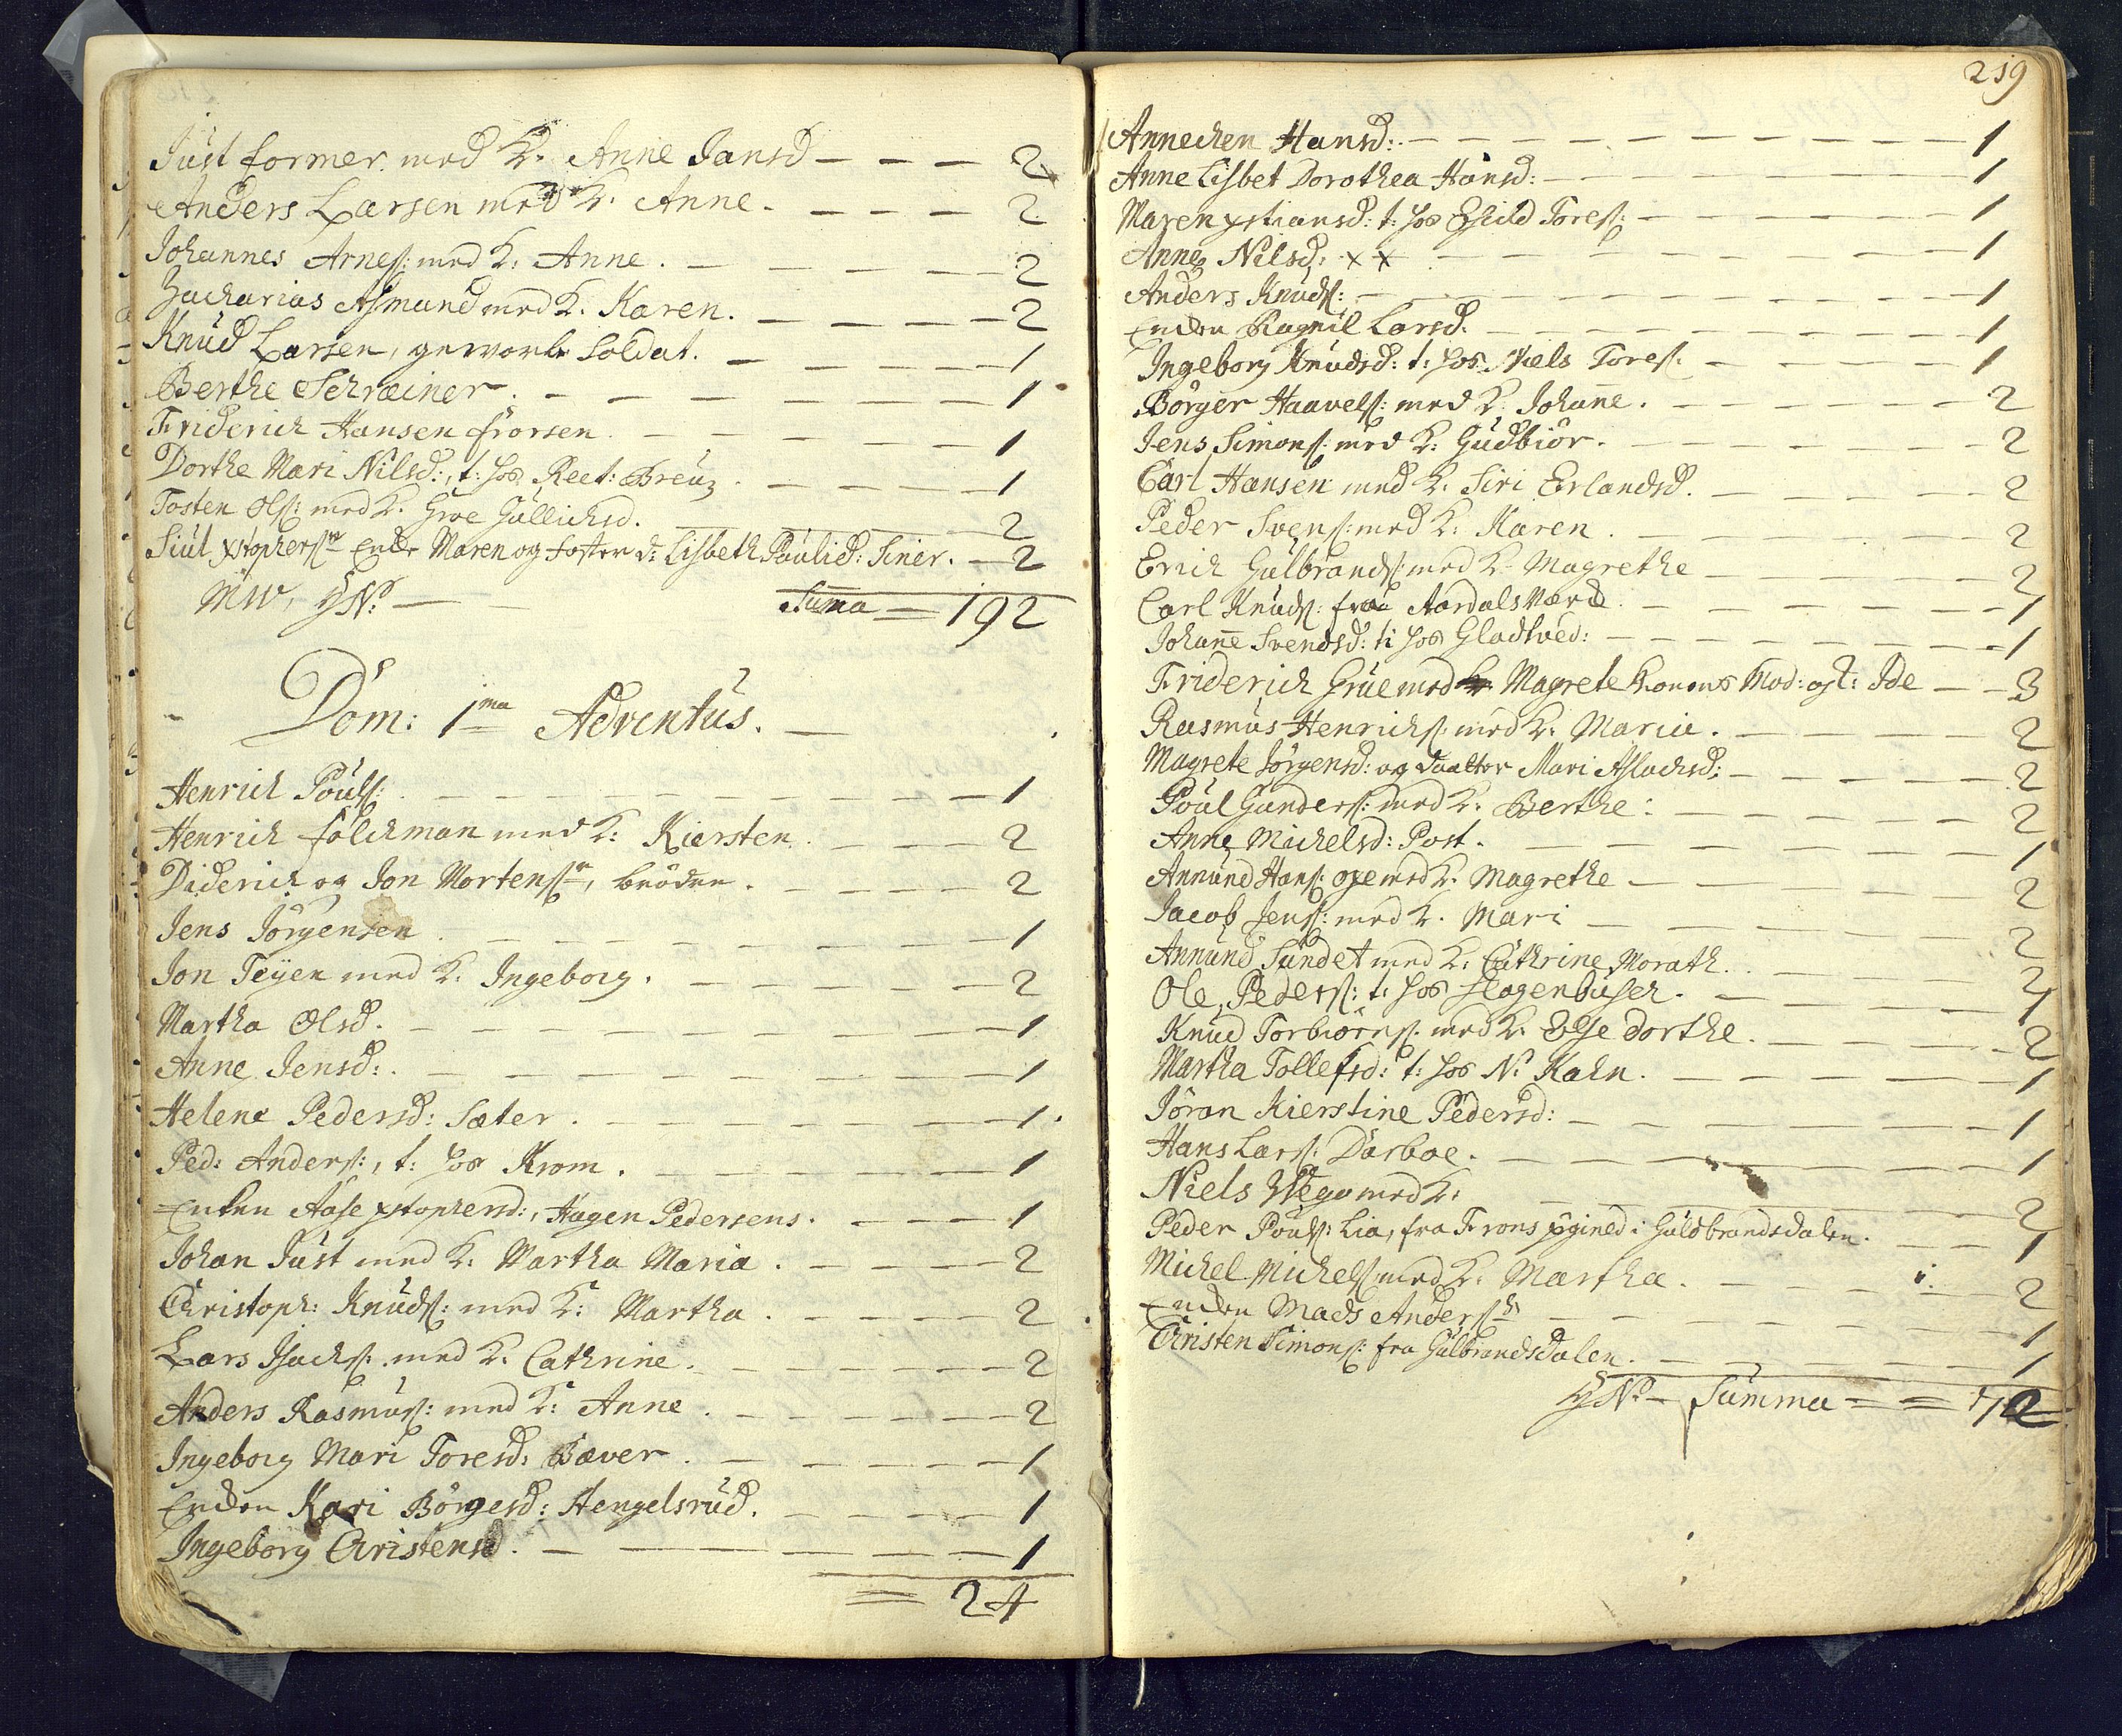 Just former med K. Anne Jansd — — — 2
Anders Larsen med K. Anne. — — — 2
Johannes Arnes: med K: Anne. — — — 2
Zacharias Asmund med K. Karen. — — — 2
Knud Larsen, geworb. Soldat. — — — 1
Berthe Schræiner. — — — 1
Friderich Hansen frorsen — — — 1
Dorthe Mari Nilsd:, t: hos Rect: Breuz. — — — 1
Tosten Ols: med K. Groe Gullichsd. — — — 2
Siul Xstophersn Enke Maren og foster d: Lisbeth Poulid: Siner. — 2
MW, Suma = 192
Dom: 1ma Adventus. —
Henrich Pouls: — — — 1
Henrich folchman med K: Kiersten. — — — 2
Diderich og Jon Mortensn, brödre. — — — 2
Jens Jörgensen — — — 1
Jon Teÿen med K. Ingeborg. — — — 2
Martha Olsd. — — — 1
Anne Jensd:. — — — 1
Helene Pedersd: Sæter. — — — 1.
Ped: Anders:, t: hos Krom. — — — 1
Enken Aase Xstophersd:, Hagen Pedersens. — — — 1
Johan Just med K. Martha Maria. — — — 2
Christoph: Knuds: med K: Martha. — — — 2
Lars Isachs: med K. Cathrine. — — — 2
Anders Rasmus: med K: Anne. — — — 2
Ingeborg Mari Toresd: Bæver. — — — 1
Enken Kari Börgesd: Hengelsrud. — — — 1
Ingeborg Christensd. — — — 1
= 24
219
Annechen Hansd:. — — — 1
Anne Lisbet Dorothea Hansd: — — — 1
Maren Xstiansd: t: hos Eskild Tores: — — — 1
Anne Nilsd: x x — — — 1
Anders Knuds: — — — 1
Enken Ragnil Larsd. — — — 1
Ingeborg Knudsd: t: hos Niels Tores: — — — 1
Börger Haavels: med K. Johanne. — — — 2
Jens Simons: med K: Gudbiör. — — — 2
Carl Hansen med K. Siri Erlandsd. — — — 2
Peder Svens: med K: Karen. — — — 2
Erich Gulbrands: med K. Magrethe — — — 2
Carl Knuds: fraa Aardals Værck. — — — 1
Johanne Svendsd: t: hos Gladtved: — — — 1
Friderich Grue med K. Magrete Konens Mod: og t: Ide — — 3
Rasmus Henrichs: med K. Maria. — — — 2
Magrete Jörgensd: og daatter Mari Aslachsd: — — — 2
Poul Gunders: med K. Berthe: — — — 2
Anne Michelsd: Post. — — — 1
Annund Hans: ope med K. Magrethe — — — 2
Jacob Jens: med K. Mari — — — 2
Annund Sundet med K: Cathrine Morath. — — — 2
Ole Peders: t: hos Hagenbusch. — — — 1
Knud Torbiörns: med K. Else Dorthe. — — — 2
Martha Tollefsd: t: hos N. Kahn. — — — 1
Jöran Kierstine Pedersd: — — — 1
Hans Lars: Darboe. — — — 1
Niels Wego med K: — — — 2
Peder Pouls: Lia, fra Frons pgined i Guldbrandsdalen. — — 1
Michel Michels: med K: Martha. — — — 2
Enken Mads Andersns — — — 1
Christen Simons: fra Gulbrandsdalen. — — — 1
Summa = = 72